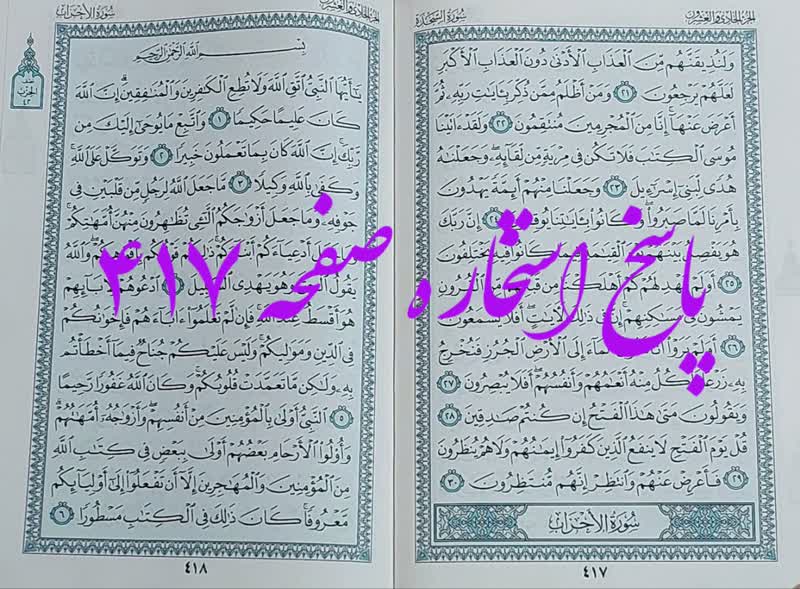 الجزء الحادي والعشرون
سورة السجدة
ولنذيقنهم من العذاب الأدنى دون العذاب الأكبر
لعلهم يرجعون ٢١ ومن أظلم ممن ذكر بآيات ربه ثم
أعرض عنها إنا من المجرمين منتقمون ٢٢ ولقد آتينا
موسى الكتاب فلا تكن في مرية من لقائه وجعلناه
هدى لبني إسرائيل ٢٣ وجعلنا منهم أئمة يهدون
بأمرنا لما صبروا وكانوا بآياتنا يوقنون ٢٤ إن ربك
هو يفصل بينهم يوم القيامة فيما كانوا فيه يختلفون
٢٥ أولم يهد لهم كم أهلكنا من قبلهم من القرون
يمشون في مساكنهم إن في ذلك لآيات أفلا يسمعون
٢٦ أولم يروا أنا نسوق الماء إلى الأرض الجرز فنخرج
به زرعا تأكل منه أنعامهم وأنفسهم أفلا يبصرون ٢٧
ويقولون متى هذا الفتح إن كنتم صادقين ٢٨
قل يوم الفتح لا ينفع الذين كفروا إيمانهم ولا هم ينظرون
٢٩ فأعرض عنهم وانتظر إنهم منتظرون ٣٠
سورة الأحزاب
٤١٧
الجزء الحادي والعشرون
سورة الأحزاب
بسم الله الرحمن الرحيم
يا أيها النبي اتق الله ولا تطع الكافرين والمنافقين إن الله
كان عليما حكيما ١ واتبع ما يوحى إليك من
ربك إن الله كان بما تعملون خبيرا ٢ وتوكل على الله
وكفى بالله وكيلا ٣ ما جعل الله لرجل من قلبين في
جوفه وما جعل أزواجكم اللائي تظاهرون منهن أمهاتكم
وما جعل أدعياءكم أبناءكم ذلكم قولكم بأفواهكم والله
يقول الحق وهو يهدي السبيل ٤ ادعوهم لآبائهم
هو أقسط عند الله فإن لم تعلموا آباءهم فإخوانكم
في الدين ومواليكم وليس عليكم جناح فيما أخطأتم
به ولكن ما تعمدت قلوبكم وكان الله غفورا رحيما
٥ النبي أولى بالمؤمنين من أنفسهم وأزواجه أمهاتهم
وأولو الأرحام بعضهم أولى ببعض في كتاب الله
من المؤمنين والمهاجرين إلا أن تفعلوا إلى أوليائكم
معروفا كان ذلك في الكتاب مسطورا ٦
٤١٨
پاسخ استخاره صفحه ۴۱۷